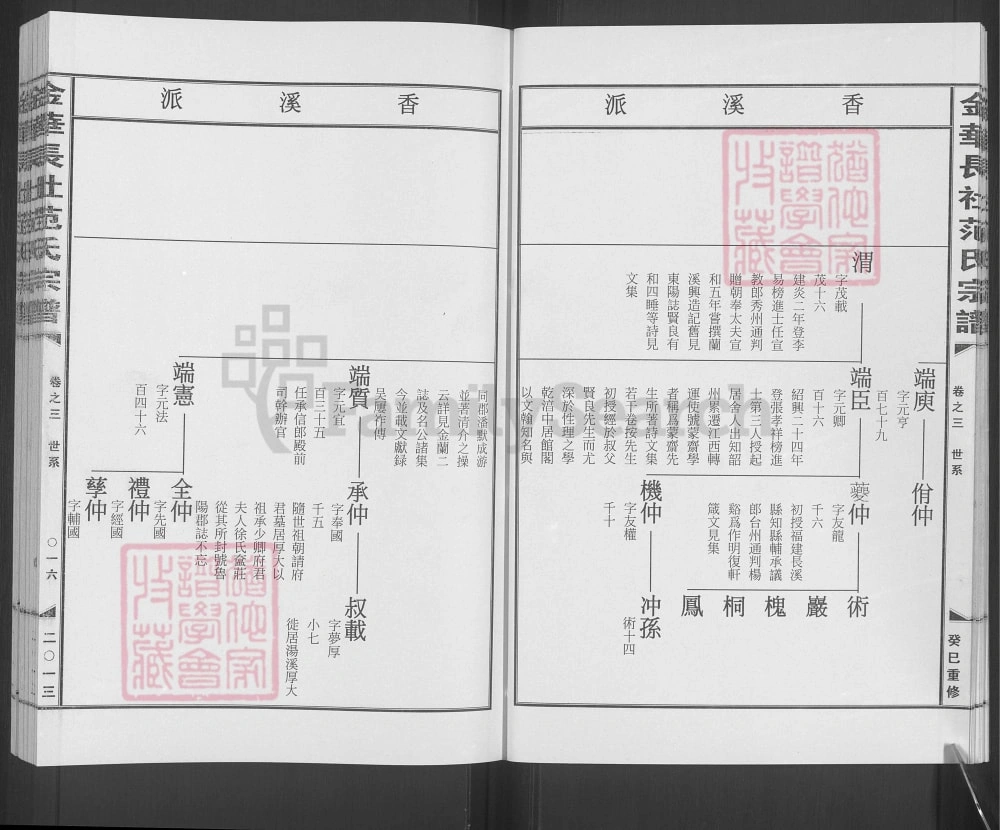 金華長社范氏宗譜
卷之三 世系
癸巳重修
香溪派
渭
字茂載
茂十六
建炎二年登李
易榜進士任宣
教郎秀州通判
贈朝奉太夫宣
和五年嘗撰蘭
溪興造記舊見
東陽誌賢良有
和四睡等詩見
文集
端庾
字元亨
百七十九
佾仲
端臣
字元卿
百十六
紹興二十四年
登張孝祥榜進
士第三人授起
居舍人出知韶
州累遷江西轉
運使號蒙齋學
者稱爲蒙齋先
生所著詩文集
若干卷按先生
初授經於叔父
賢良先生而尤
深於性理之學
乾淯中居館閣
以文翰知名與
夔仲
字友龍
千六
初授福建長溪
縣知縣輔承議
郎台州通判楊
谿爲作明復軒
箴文見集
術
巖
槐
桐
鳳
機仲
字友權
千十
冲孫
術十四
香溪派
同郡潘默成游
並著清介之操
云詳見金蘭二
誌及名公諸集
今並載文獻録
吴屢祚傳
端質
字元宜
百三十五
任承信郎殿前
司幹辦官
承仲
字奉國
千五
隨世祖朝請府
君墓居厚大以
祖承少卿府君
夫人徐氏奩莊
從其所封號魯
陽郡誌不忘
叔載
字夢厚
小七
徙居湯溪厚大
端憲
字元法
百四十六
全仲
字先國
禮仲
字經國
孳仲
字輔國
金華長社范氏宗譜
卷之三 世系
〇一六
二〇一三
FamilySearch